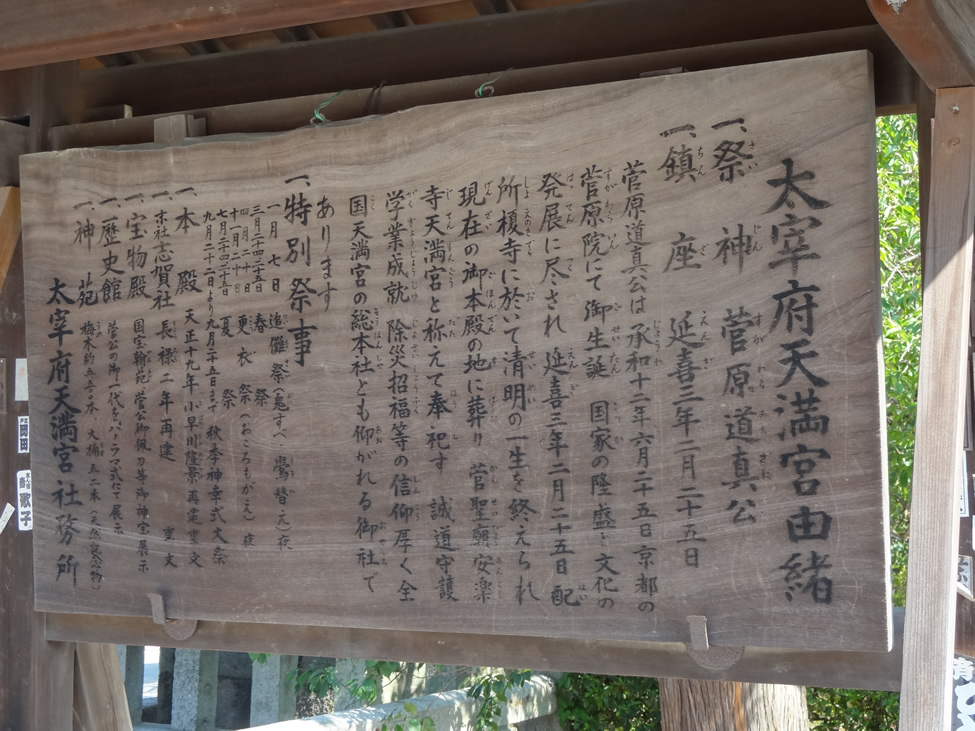 太宰府天満宮由緒
一、祭神 菅原道真公
一、鎮座 延喜三年二月二十五日
菅原道真公は 承和十二年六月二十五日京都の
菅原院にて御生誕 国家の隆盛と文化の
発展に尽され 延喜三年二月二十五日 配
所榎寺に於いて清明の一生を終えられ
現在の御本殿の地に葬り 菅聖廟安楽
寺天満宮と称えて奉祀す 誠道守護
学業成就 除災招福等の信仰厚く全
国天満宮の総本社とも仰がれる御社で
あります
一、特別祭事
一月七日 追儺祭(鬼すべ、鷽替え)夜
三月二十四二十五日 春祭
四月二十日 十一月二十日 更衣祭(おころもがえ)夜
七月二十四二十五日 夏祭
九月二十二日より九月二十五日まで 秋季神幸式大祭
一、本殿 天正十九年小早川隆景再建 重文
一、末社志賀社 長禄二年再建 重文
一、宝物殿 国宝翰苑 菅公御佩刀等御神宝展示
一、歴史館 菅公の御一代をパノラマ式で展示
一、神苑 梅木約五千本 大樟五二本(天然記念物)
太宰府天満宮社務所
歌子